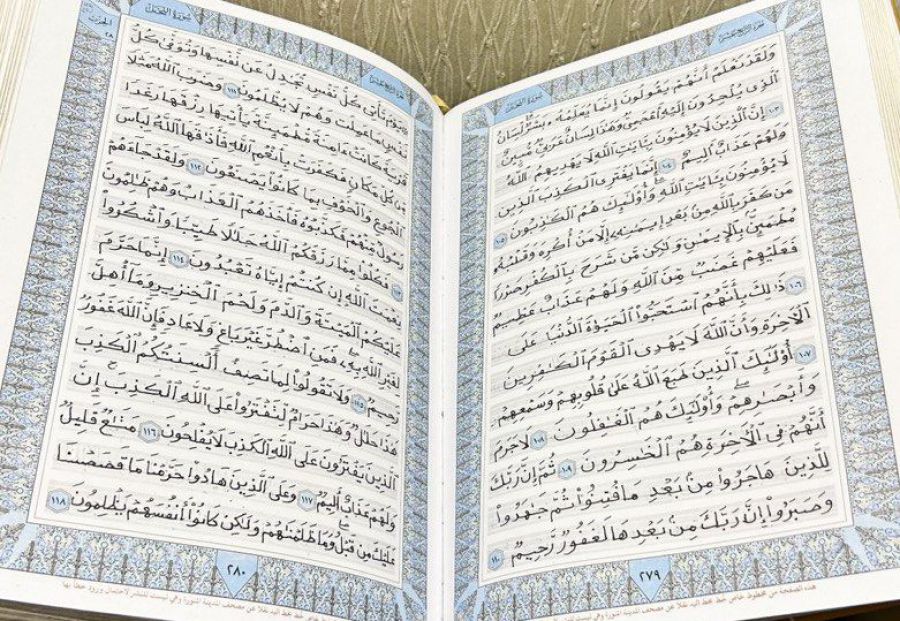 جزء الرابع عشر
سورة النحل
وَلَقَدْ نَعْلَمُ أَنَّهُمْ يَقُولُونَ إِنَّمَا يُعَلِّمُهُۥ بَشَرٌ لِّسَانُ
ٱلَّذِى يُلْحِدُونَ إِلَيْهِ أَعْجَمِىٌّ وَهَٰذَا لِسَانٌ عَرَبِىٌّ مُّبِينٌ
١٠٣ إِنَّ ٱلَّذِينَ لَا يُؤْمِنُونَ بِـَٔايَٰتِ ٱللَّهِ لَا يَهْدِيهِمُ ٱللَّهُ
وَلَهُمْ عَذَابٌ أَلِيمٌ ١٠٤ إِنَّمَا يَفْتَرِى ٱلْكَذِبَ ٱلَّذِينَ
لَا يُؤْمِنُونَ بِـَٔايَٰتِ ٱللَّهِ وَأُو۟لَٰٓئِكَ هُمُ ٱلْكَٰذِبُونَ ١٠٥
مَن كَفَرَ بِٱللَّهِ مِنۢ بَعْدِ إِيمَٰنِهِۦٓ إِلَّا مَنْ أُكْرِهَ وَقَلْبُهُۥ
مُطْمَئِنٌّۢ بِٱلْإِيمَٰنِ وَلَٰكِن مَّن شَرَحَ بِٱلْكُفْرِ صَدْرًا
فَعَلَيْهِمْ غَضَبٌ مِّنَ ٱللَّهِ وَلَهُمْ عَذَابٌ عَظِيمٌ
١٠٦ ذَٰلِكَ بِأَنَّهُمُ ٱسْتَحَبُّوا۟ ٱلْحَيَوٰةَ ٱلدُّنْيَا عَلَى
ٱلْءَاخِرَةِ وَأَنَّ ٱللَّهَ لَا يَهْدِى ٱلْقَوْمَ ٱلْكَٰفِرِينَ
١٠٧ أُو۟لَٰٓئِكَ ٱلَّذِينَ طَبَعَ ٱللَّهُ عَلَىٰ قُلُوبِهِمْ وَسَمْعِهِمْ
وَأَبْصَٰرِهِمْ وَأُو۟لَٰٓئِكَ هُمُ ٱلْغَٰفِلُونَ ١٠٨ لَا جَرَمَ
أَنَّهُمْ فِى ٱلْءَاخِرَةِ هُمُ ٱلْخَٰسِرُونَ ١٠٩ ثُمَّ إِنَّ رَبَّكَ
لِلَّذِينَ هَاجَرُوا۟ مِنۢ بَعْدِ مَا فُتِنُوا۟ ثُمَّ جَٰهَدُوا۟
وَصَبَرُوٓا۟ إِنَّ رَبَّكَ مِنۢ بَعْدِهَا لَغَفُورٌ رَّحِيمٌ ١١٠
٢٧٩
سورة النحل
يَوْمَ تَأْتِى كُلُّ نَفْسٍ تُجَٰدِلُ عَن نَّفْسِهَا وَتُوَفَّىٰ كُلُّ
نَفْسٍ مَّا عَمِلَتْ وَهُمْ لَا يُظْلَمُونَ ١١١ وَضَرَبَ ٱللَّهُ مَثَلًا
قَرْيَةً كَانَتْ ءَامِنَةً مُّطْمَئِنَّةً يَأْتِيهَا رِزْقُهَا رَغَدًا
مِّن كُلِّ مَكَانٍ فَكَفَرَتْ بِأَنْعُمِ ٱللَّهِ فَأَذَٰقَهَا ٱللَّهُ لِبَاسَ
ٱلْجُوعِ وَٱلْخَوْفِ بِمَا كَانُوا۟ يَصْنَعُونَ ١١٢ وَلَقَدْ جَآءَهُمْ
رَسُولٌ مِّنْهُمْ فَكَذَّبُوهُ فَأَخَذَهُمُ ٱلْعَذَابُ وَهُمْ ظَٰلِمُونَ
١١٣ فَكُلُوا۟ مِمَّا رَزَقَكُمُ ٱللَّهُ حَلَٰلًا طَيِّبًا وَٱشْكُرُوا۟
نِعْمَتَ ٱللَّهِ إِن كُنتُمْ إِيَّاهُ تَعْبُدُونَ ١١٤ إِنَّمَا حَرَّمَ
عَلَيْكُمُ ٱلْمَيْتَةَ وَٱلدَّمَ وَلَحْمَ ٱلْخِنزِيرِ وَمَآ أُهِلَّ
لِغَيْرِ ٱللَّهِ بِهِۦ فَمَنِ ٱضْطُرَّ غَيْرَ بَاغٍ وَلَا عَادٍ فَإِنَّ ٱللَّهَ غَفُورٌ
رَّحِيمٌ ١١٥ وَلَا تَقُولُوا۟ لِمَا تَصِفُ أَلْسِنَتُكُمُ ٱلْكَذِبَ
هَٰذَا حَلَٰلٌ وَهَٰذَا حَرَامٌ لِّتَفْتَرُوا۟ عَلَى ٱللَّهِ ٱلْكَذِبَ إِنَّ
ٱلَّذِينَ يَفْتَرُونَ عَلَى ٱللَّهِ ٱلْكَذِبَ لَا يُفْلِحُونَ ١١٦ مَتَٰعٌ قَلِيلٌ
وَلَهُمْ عَذَابٌ أَلِيمٌ ١١٧ وَعَلَى ٱلَّذِينَ هَادُوا۟ حَرَّمْنَا مَا قَصَصْنَا
عَلَيْكَ مِن قَبْلُ وَمَا ظَلَمْنَٰهُمْ وَلَٰكِن كَانُوٓا۟ أَنفُسَهُمْ يَظْلِمُونَ ١١٨
٢٨٠